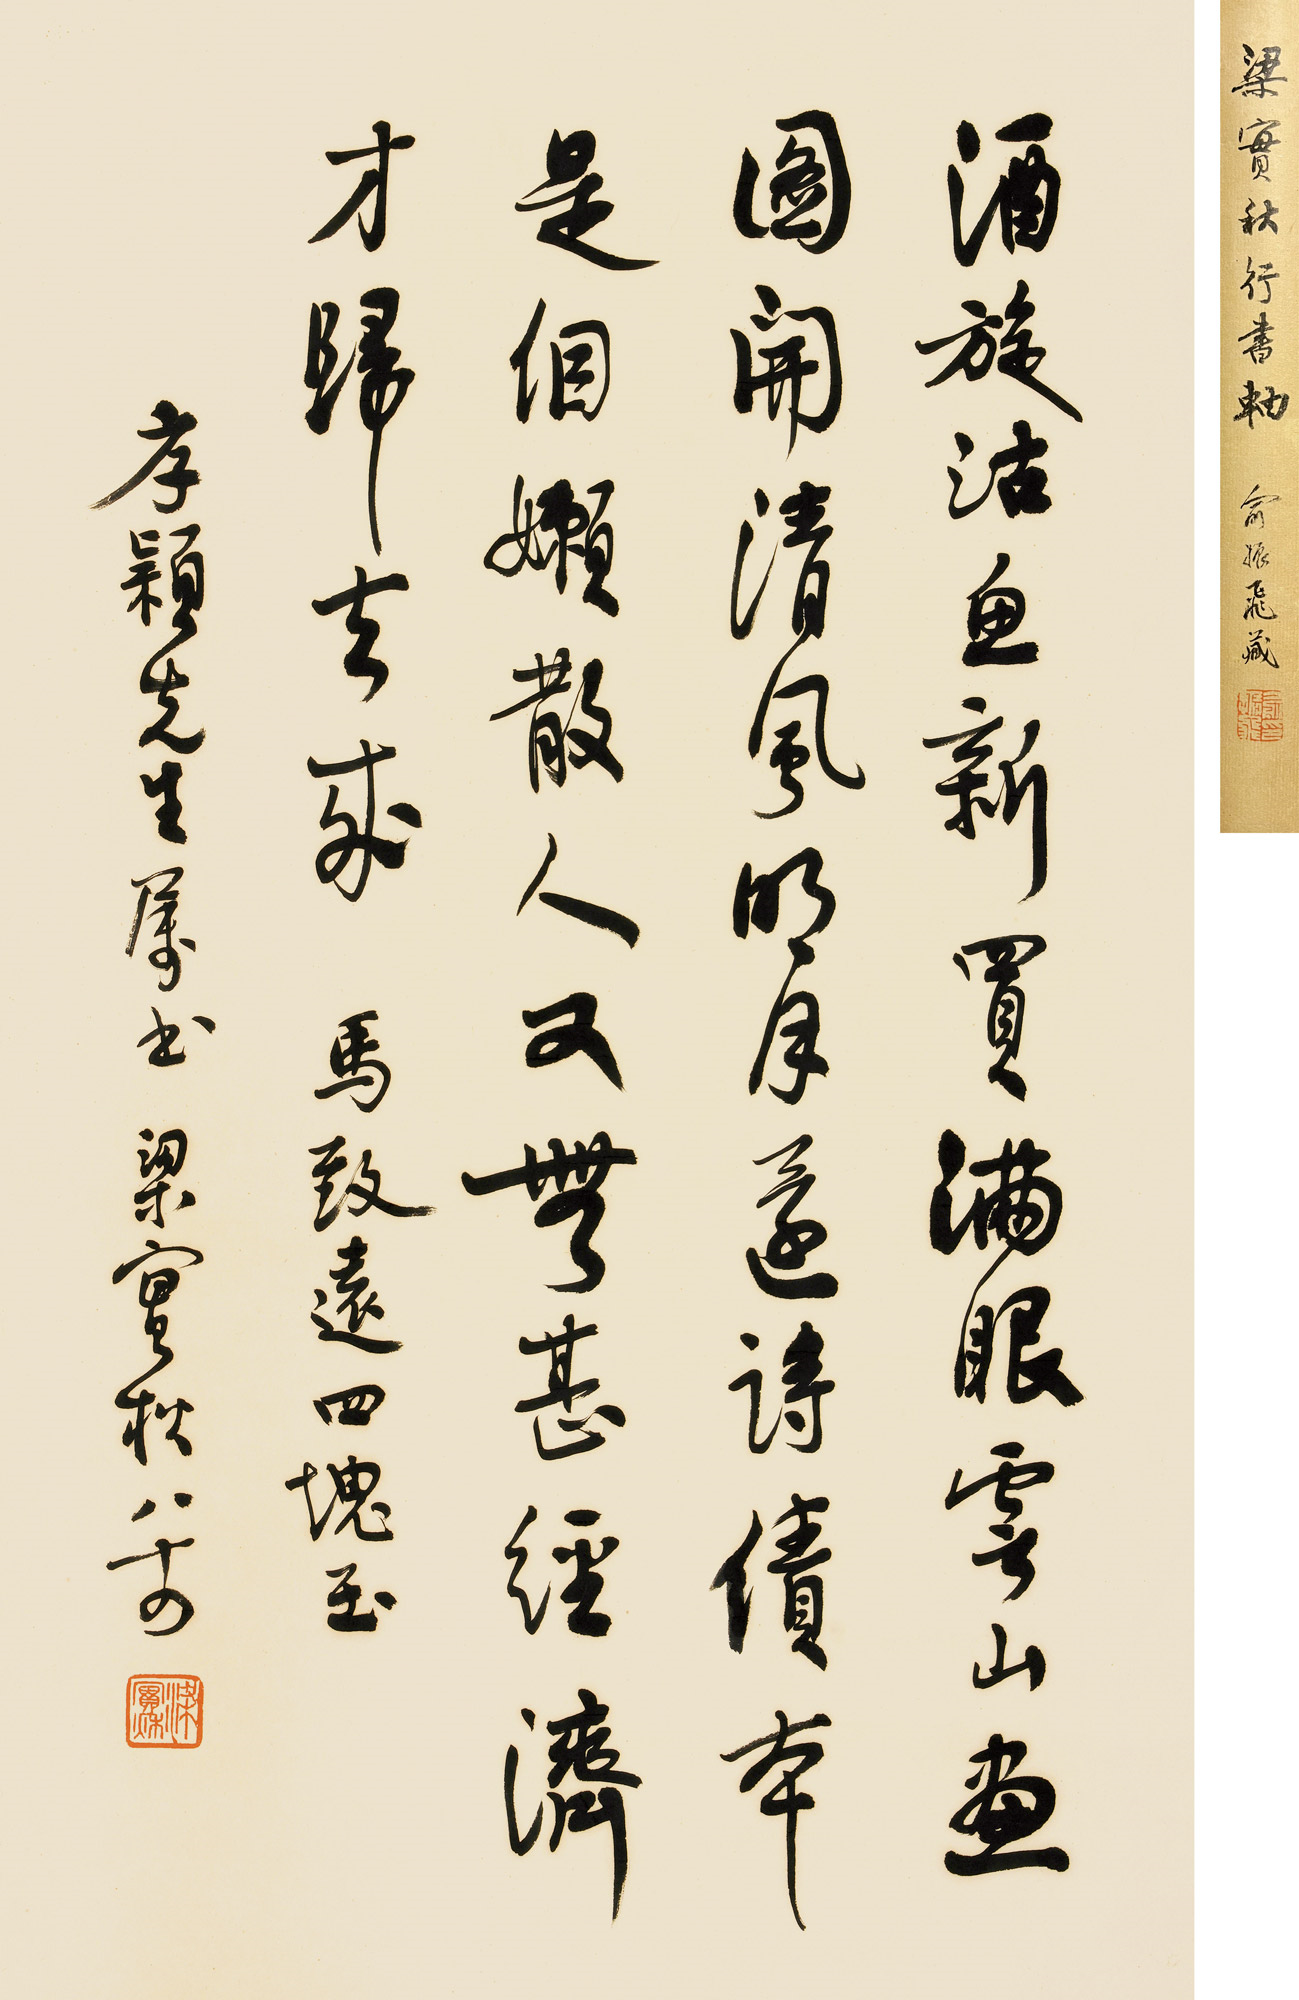 酒旋沽魚新買滿眼雲山畫
圖開清風明月還詩債本
是個嬾散人又無甚經濟
才歸去哉 馬致遠四塊玉
孝穎先生属書 梁實秋 八十
梁實秋
梁實秋行書軸 俞振飛藏